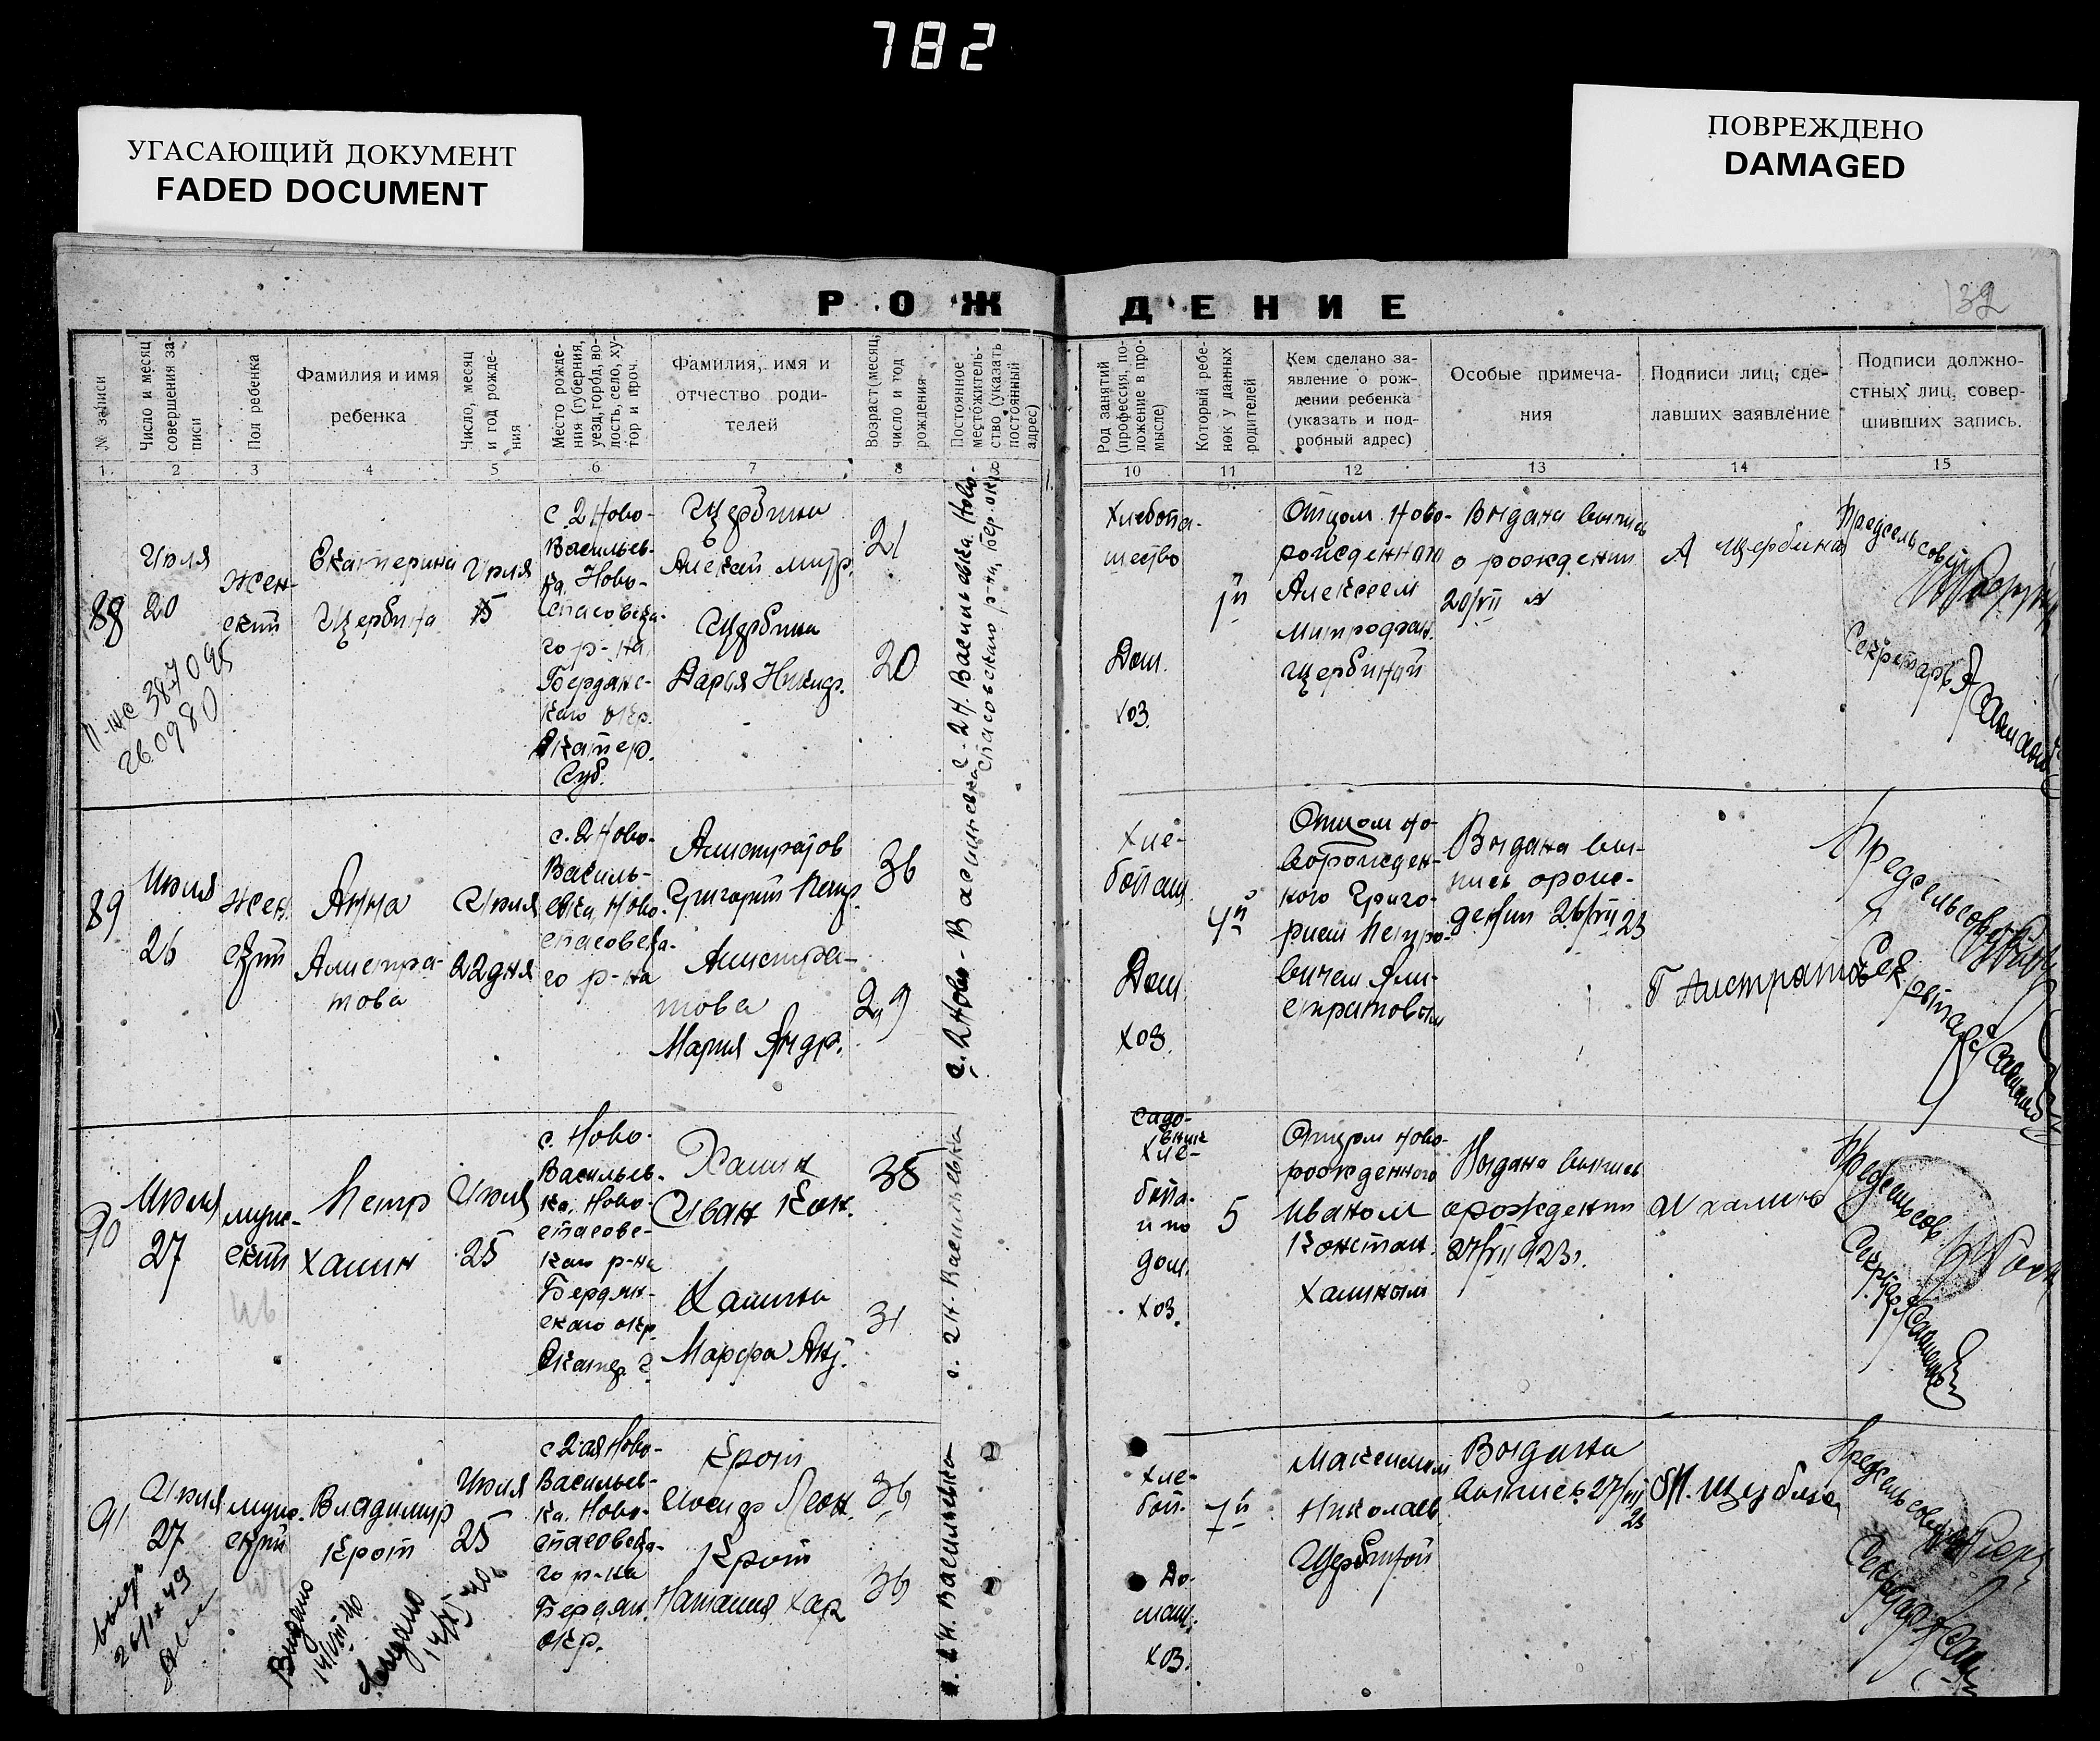 782
УГАСАЮЩИЙ ДОКУМЕНТ
FADED DOCUMENT
ПОВРЕЖДЕНО
DAMAGED
РОЖДЕНИЕ
132
№ записи
Число и месяц совершения за-
писи
Пол ребенка
Фамилия и имя
ребенка
Число, месяц
и год рожде-
ния
Место рожде-
ния (губерния,
уезд, город, во-
лость, село, ху-
тор и проч.
Фамилия, имя и
отчество роди-
телей
Возраст (месяц,
число и год
рождения
Постоянное
местожитель-
ство (указать
постоянный
адрес)
Род занятий
(профессия, по-
ложение в про-
мысле)
Который ребе-
нок у данных
родителей
Кем сделано за-
явление о рож-
дении ребенка
(указать и под-
робный адрес)
Особые примеча-
ния
Подписи лиц, сде-
лавших заявление
Подписи должно-
стных лиц, совер-
шивших запись.
1 2 3 4 5 6 7 8
10 11 12 13 14 15
88
Июля
20
Жен-
ский
Екатерина
Щербина
Июля
15
с 2 Ново-
Васильев-
ка, Ново-
спасовска-
го р-на
Бердянс-
каго окр.
Екатер.
Губ.
Щербина
Алексей Митр.
Щербина
Дарья Никиф.
21
20
с. 2 Н. Васильевка Ново-
спасовскаго р-на, Бер. окр
Хлебопа-
шество
Дом.
хоз.
1й
Отцом ново-
рожденной
Алексеем
Митрофан.
Щербиной
Выдана выпись
о рождении
20/VII
А Щербина
Предсельсовета
Секретарь
38-7095
260980
89
Июля
26
Жен
ский
Анна
Алистра-
това
Июля
22 дня
с. 2 Ново-
Василь-
евка, Ново-
спасовска-
го р-на
Алистратов
Григорий Петр.
Алистра-
това
Мария Андр.
36
29
с. 2 Ново-Васильевка
Хле-
бопаш.
Дом.
хоз.
4й
Отцом но-
ворожден-
ного Григо-
рием Петро-
вичем Али-
стратовым
Выдана вы-
пись о рож-
дении 26/VII 23
Г Алистратов
Предсельсовета
Секретарь
90
Июля
27
муж-
ский
Петр
Халин
Июля
25
с. Ново-
Васильев-
ка, Ново-
спасовс-
каго р-на
Бердян-
скаго окр
Екатер. г.
Халин
Иван Кон.
Халина
Марфа Анд.
38
31
с. 2 Н. Васильевка
Садо-
вник
Хле-
бопа.
и по
дом.
хоз.
5
Отцом ново-
рожденного
Иваном
Констан.
Халином
Выдана выпись
о рождении
27/VII 923 г.
И Халин
Предсельсов.
Секрет.
91
Июля
27
муж-
ский
Владимир
Крот
Июля
25
с 2-ая Ново-
Васильев-
ка, Ново-
спасовска-
го р-на
Бердян.
окр.
Крот
Иосиф Леон.
Крот
Наталия Хар
36
36
с. 2 Н. Васильевка
Хле-
боп.
До-
маш.
хоз.
7й
Максимом
Николаев
Щербиной
Выдана
выпись 27/VII
23
Предсельсовета
Секретарь
26/IX 49
Выдано
14/VIII-40
Выдано